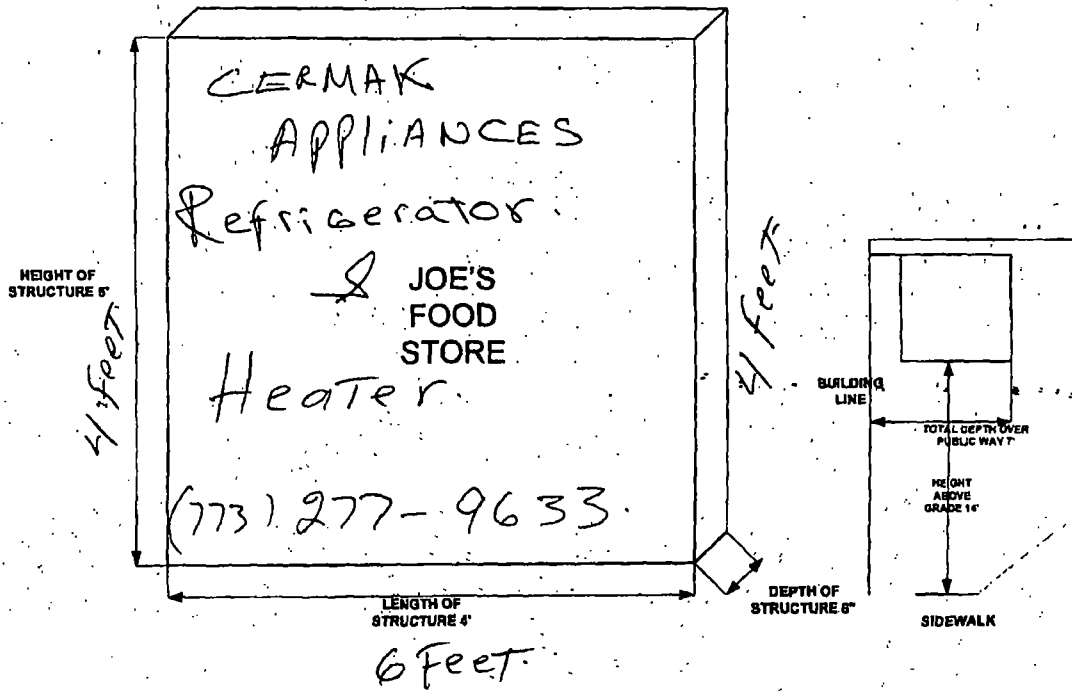 CERMAK
APPLiANCES
Refrigerator.
& JOE'S
FOOD
STORE
Heater.
(773) 277-9633.
HEIGHT OF
STRUCTURE 5'
4 feet
4 feet
LENGTH OF
STRUCTURE 4'
6 Feet.
DEPTH OF
STRUCTURE 6"
BUILDING
LINE
TOTAL DEPTH OVER
PUBLIC WAY 7'
HEIGHT
ABOVE
GRADE 14'
SIDEWALK